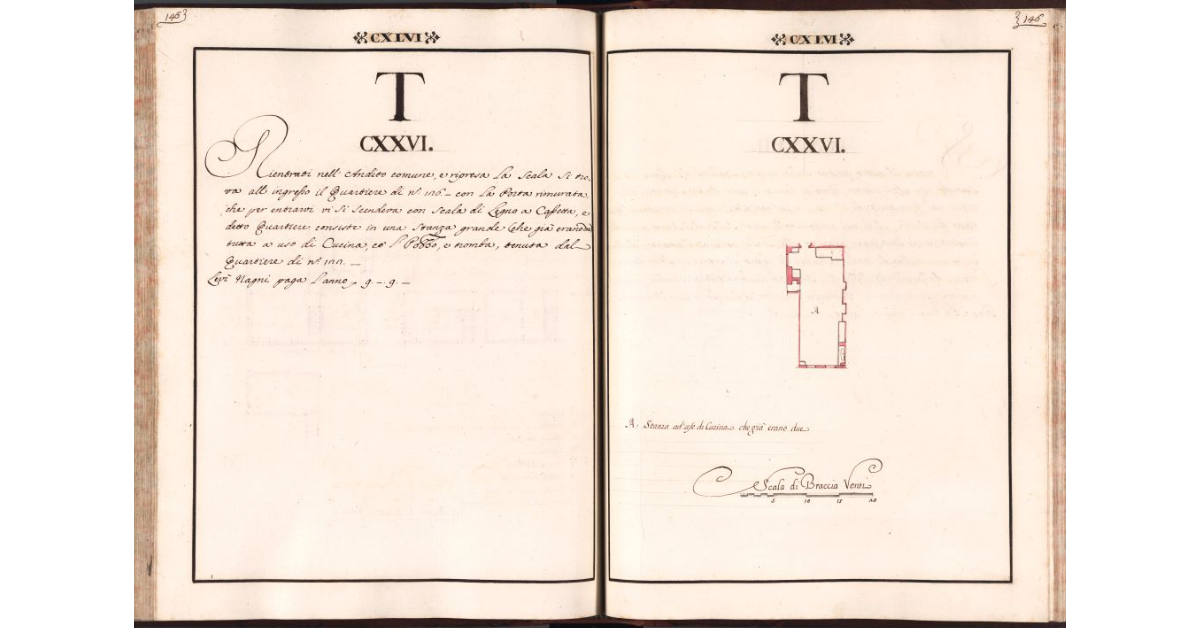 146
CXLVI
T
CXXVI.
Rientrati nell'Andito comune, e ripresa La Scala Si tro-
va all'ingresso il Quartiere di n.º 126. con La Porta rimurata,
che per entrarvi vi Si Scendeva con Scala di Legno a Cassetta, e
detto Quartiere consiste in una Stanza grande che già erano
tutta a uso di Cucina, e tromba, tenuta dal
Quartiere di n.º
Levi Magni paga L'anno 9. – 9. –
146
CXLVI
T
CXXVI.
A
A. Stanza ad uso di Cucina che già erano due
Scala di Braccia Venti
5 10 15 20